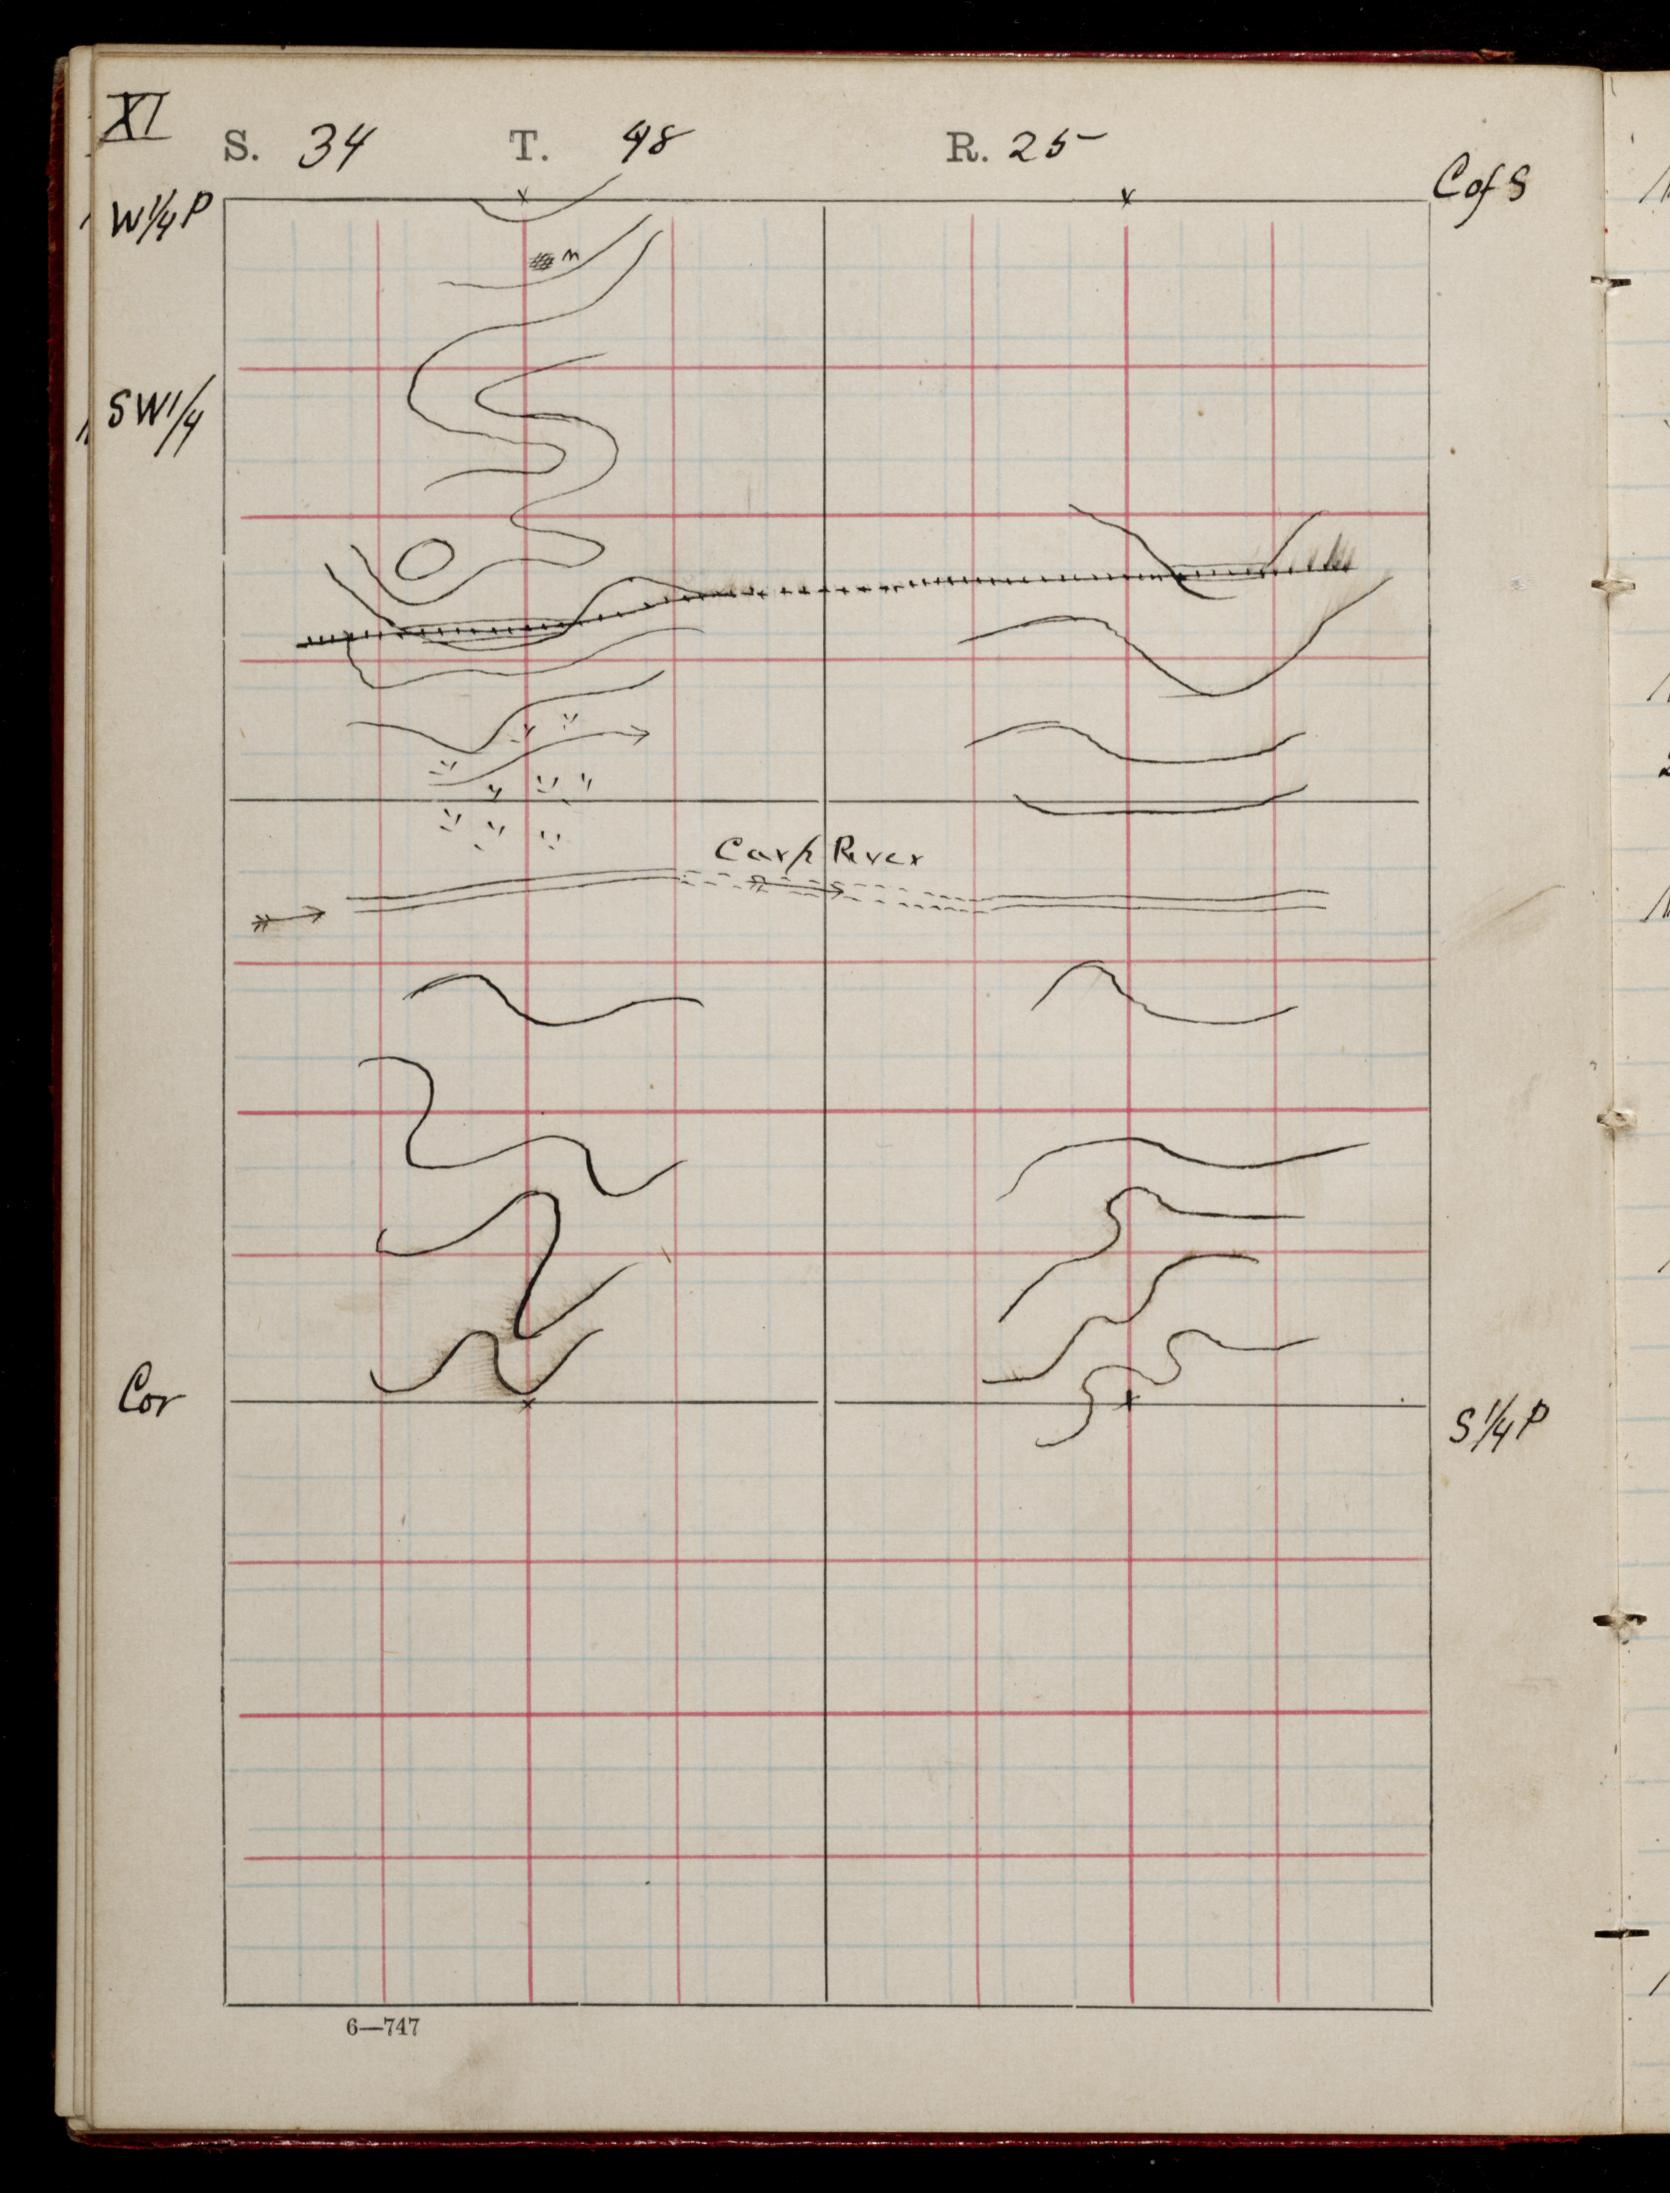 XI
S. 34 T. 48 R. 25
W 1/4 P
C of S
n
SW 1/4
Carp River
Cor
S 1/4 P
6—747